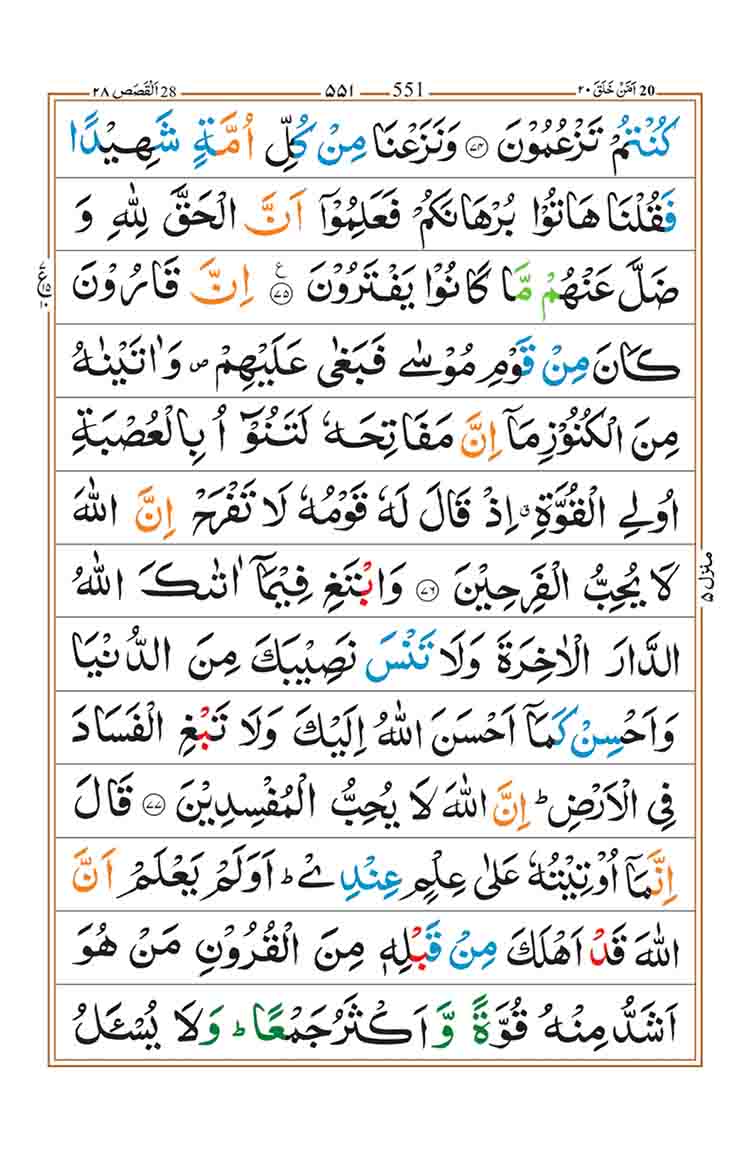 20 اَمَّنْ خَلَقَ ٢٠ 551 ۵۵۱ 28 اَلْقَصَص ٢٨
كُنْتُمْ تَزْعُمُوْنَ ۝۷۴ وَنَزَعْنَا مِنْ كُلِّ اُمَّةٍ شَهِيْدًا
فَقُلْنَا هَاتُوْا بُرْهَانَكُمْ فَعَلِمُوْۤا اَنَّ الْحَقَّ لِلّٰهِ وَ
ضَلَّ عَنْهُمْ مَّا كَانُوْا يَفْتَرُوْنَ ۝۷۵ ع اِنَّ قَارُوْنَ
ع ۷ ۱۵ ۱۰
كَانَ مِنْ قَوْمِ مُوْسٰى فَبَغٰى عَلَيْهِمْ ص وَاٰتَيْنٰهُ
مِنَ الْكُنُوْزِ مَاۤ اِنَّ مَفَاتِحَهٗ لَتَنُوْٓاُ بِالْعُصْبَةِ
اُولِى الْقُوَّةِ ق اِذْ قَالَ لَهٗ قَوْمُهٗ لَا تَفْرَحْ اِنَّ اللّٰهَ
لَا يُحِبُّ الْفَرِحِيْنَ ۝۷۶ وَابْتَغِ فِيْمَاۤ اٰتٰىكَ اللّٰهُ
منزل ۵
الدَّارَ الْاٰخِرَةَ وَلَا تَنْسَ نَصِيْبَكَ مِنَ الدُّنْيَا
وَاَحْسِنْ كَمَاۤ اَحْسَنَ اللّٰهُ اِلَيْكَ وَلَا تَبْغِ الْفَسَادَ
فِى الْاَرْضِ ؕ اِنَّ اللّٰهَ لَا يُحِبُّ الْمُفْسِدِيْنَ ۝۷۷ قَالَ
اِنَّمَاۤ اُوْتِيْتُهٗ عَلٰى عِلْمٍ عِنْدِىْ ؕ اَوَلَمْ يَعْلَمْ اَنَّ
اللّٰهَ قَدْ اَهْلَكَ مِنْ قَبْلِهٖ مِنَ الْقُرُوْنِ مَنْ هُوَ
اَشَدُّ مِنْهُ قُوَّةً وَّ اَكْثَرُ جَمْعًا ؕ وَلَا يُسْـَٔلُ